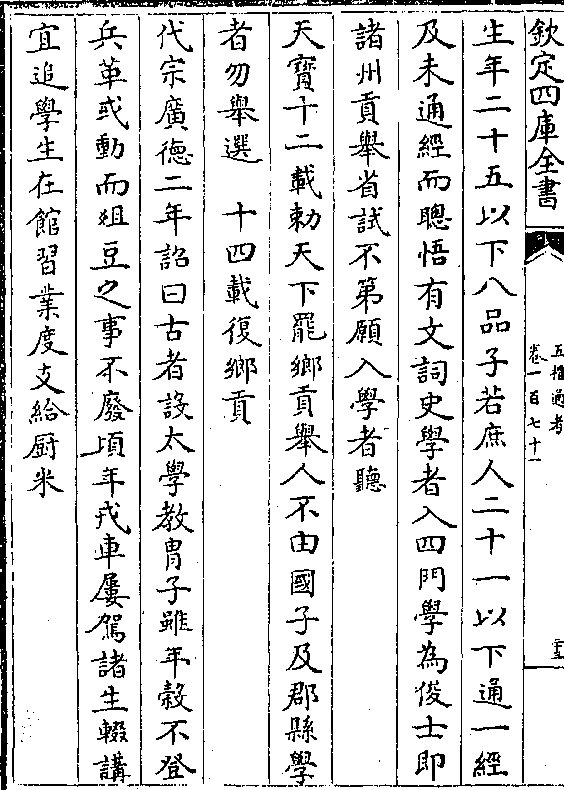 欽定四庫全書
五禮通考
卷一百七十一
生年二十五以下八品子若庶人二十一以下通一經
及未通經而聰悟有文詞史學者入四門學為俊士即
諸州貢舉省試不第願入學者聽
天寶十二載勅天下罷鄉貢舉人不由國子及郡縣學
者勿舉選　十四載復鄉貢
代宗廣德二年詔曰古者設太學教胄子雖年穀不登
兵革或動而俎豆之事不廢頃年戎車屢駕諸生輟講
宜追學生在館習業度支給厨米